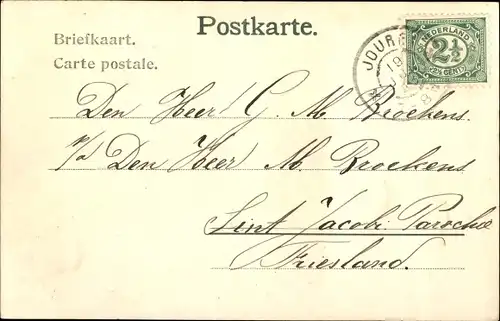 Postkarte.
Briefkaart.
Carte postale.
NEDERLAND
2½
2½ CENT
JOUR
19
8
Den Heer G. M. Brockens.
p/a Den Heer M. Brockens
Sint Jacobi Parochie
Friesland.